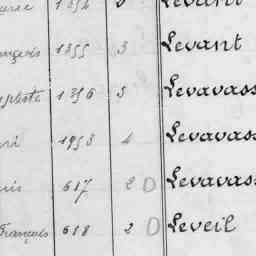 1354 3 Levant
ançois 1355 3 Levant
aptiste 1356 3 Levavass
1953 4 Levavass
uis 617 2 0 Levavass
François 618 2 0 Leveil